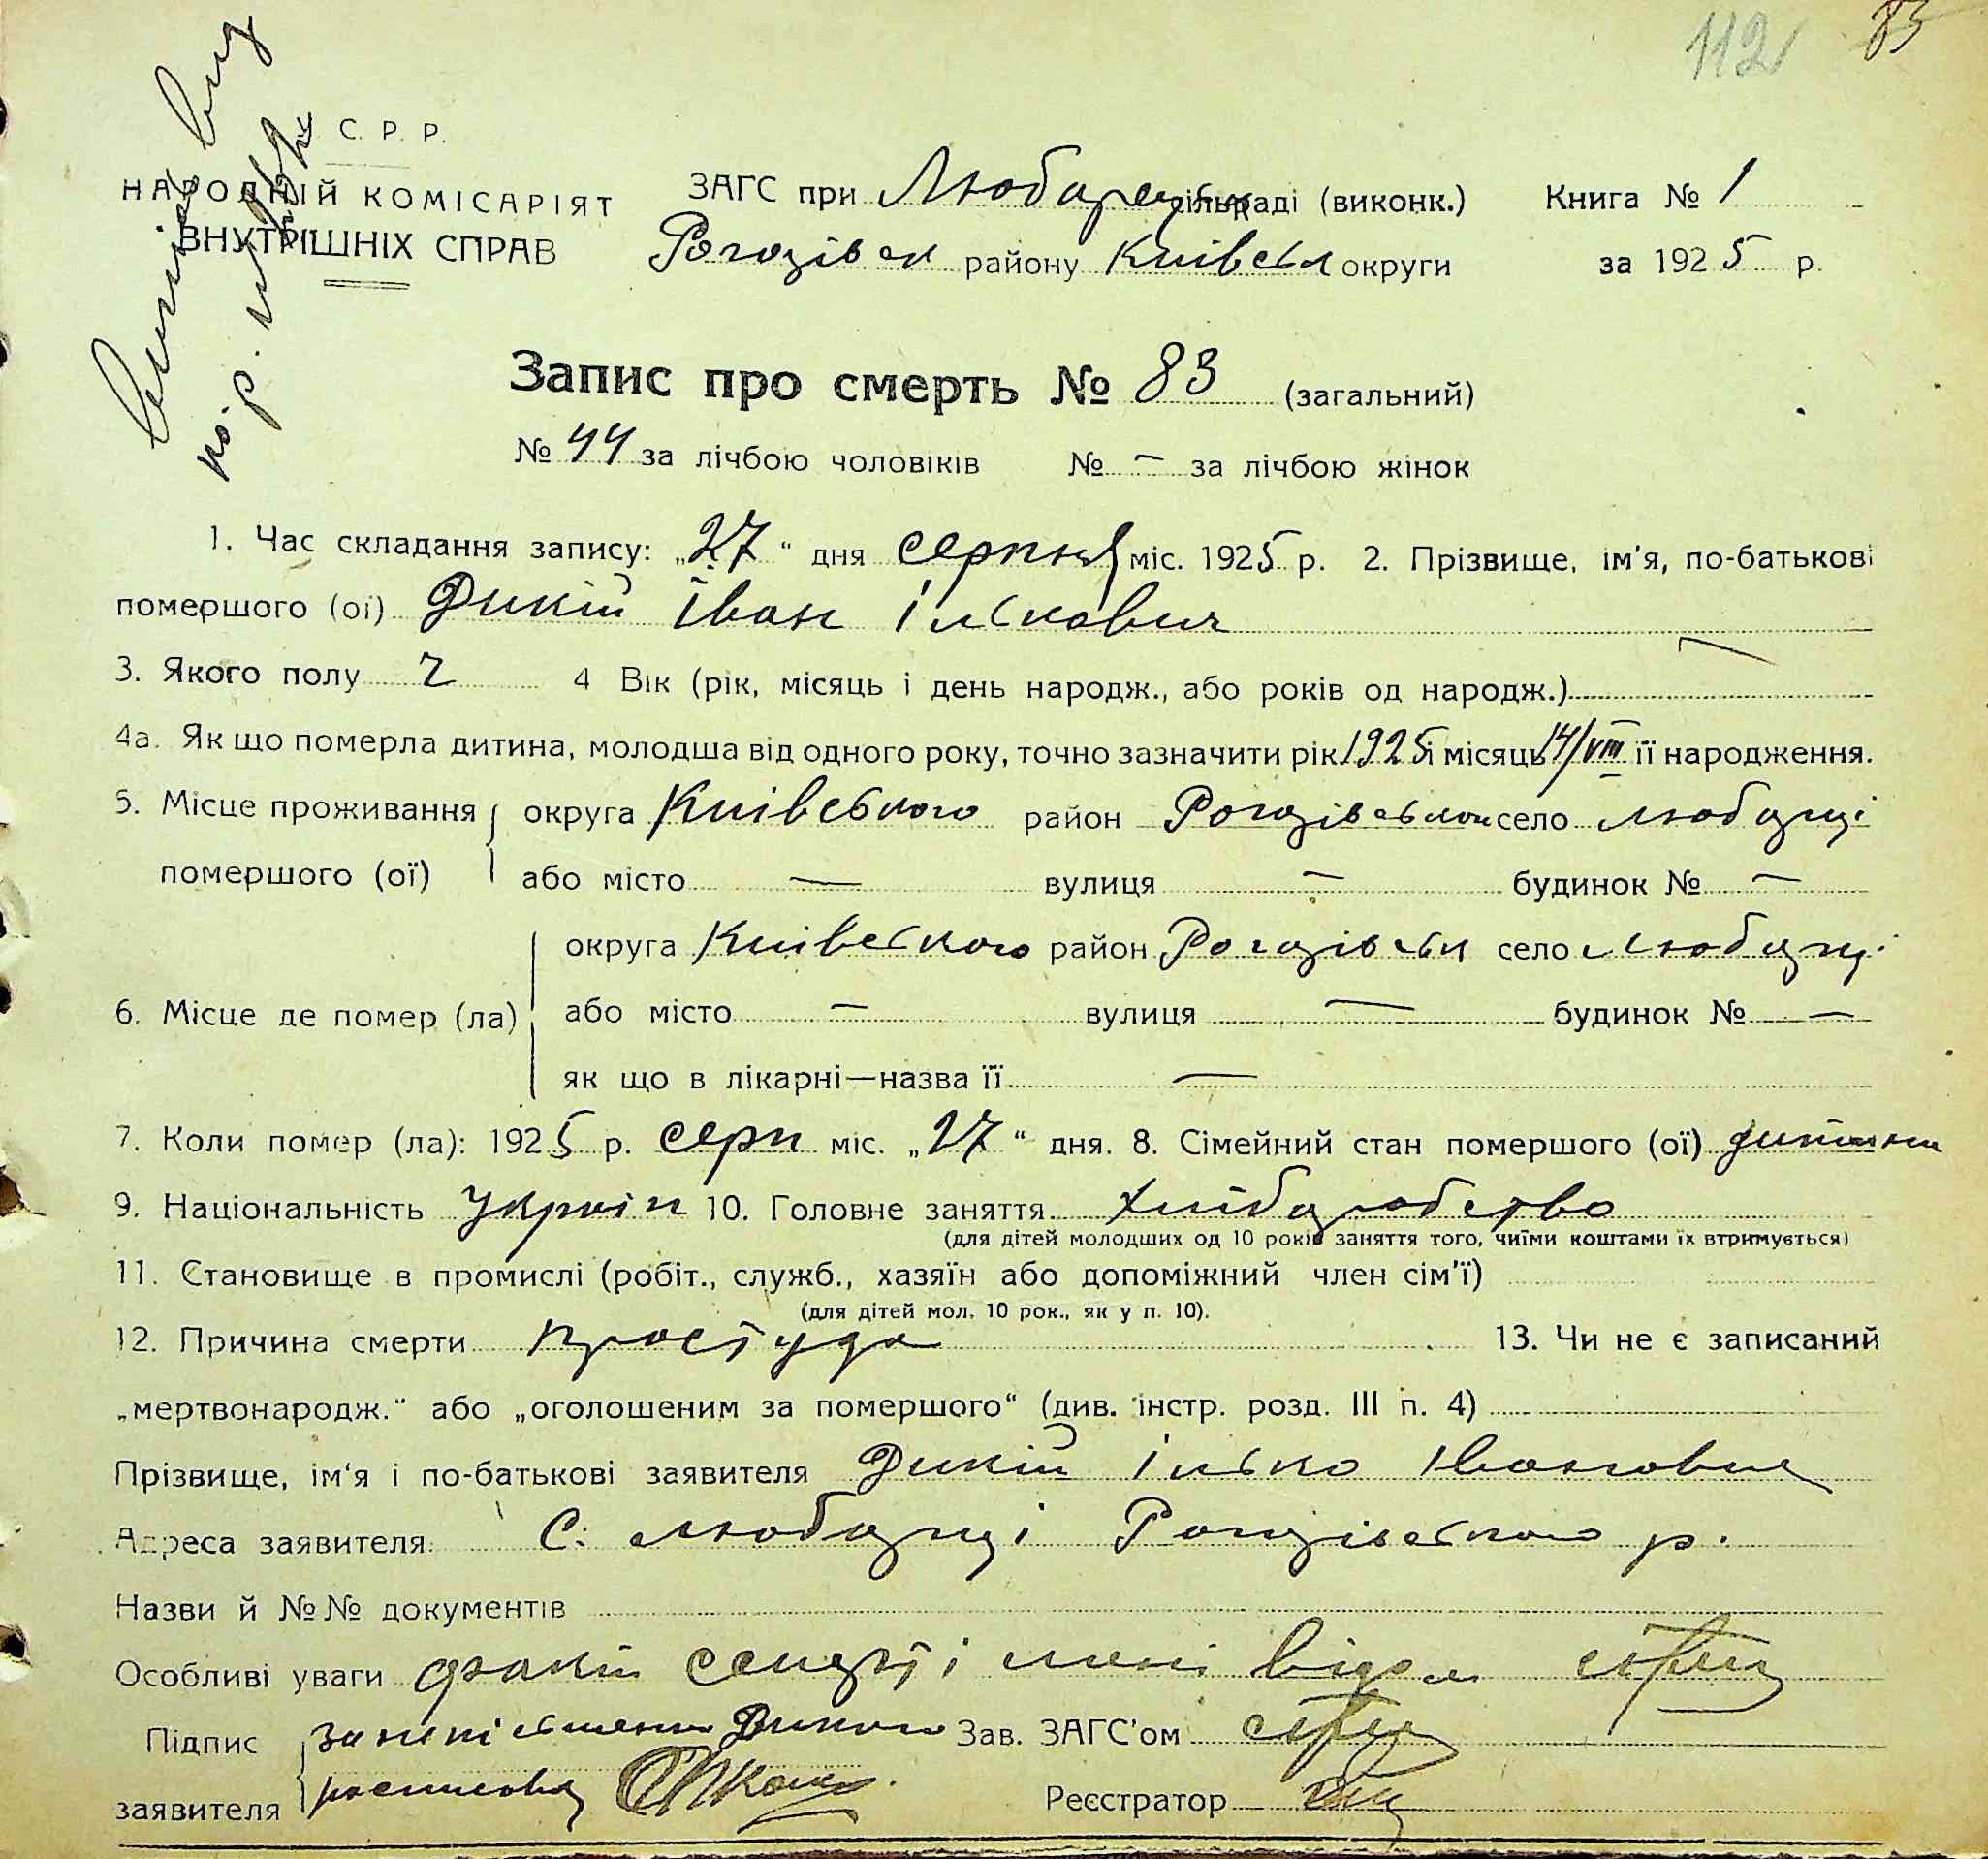 112 83
С. Р. Р.
НАРОДНІЙ КОМІСАРІЯТ
ВНУТРІШНІХ СПРАВ
ЗАГС при Любарецьк сільраді (виконк.) Книга № 1
Рогозівськ району Київськ округи за 1925 р.
Запис про смерть № 83 (загальний)
№ 44 за лічбою чоловіків № — за лічбою жінок
1. Час складання запису: „27“ дня серпня міс. 1925 р. 2. Прізвище, ім'я, по-батькові
помершого (ої) Дикій Іван Ількович
3. Якого полу ч 4 Вік (рік, місяць і день народж., або років од народж.) —
4а. Як що померла дитина, молодша від одного року, точно зазначити рік 1925 і місяць 14/VIII її народження.
5. Місце проживання округа Київського район Рогозівського село Любарці
помершого (ої) або місто — вулиця — будинок № —
округа Київського район Рогозівськ село Любарці
6. Місце де помер (ла) або місто — вулиця — будинок № —
як що в лікарні—назва її —
7. Коли помер (ла): 1925 р. серп міс. „27“ дня. 8. Сімейний стан помершого (ої) дитина
9. Національність Україн 10. Головне заняття хліборобство
(для дітей молодших од 10 років заняття того, чиїми коштами їх втримується)
11. Становище в промислі (робіт., служб., хазяїн або допоміжний член сім'ї)
(для дітей мол. 10 рок., як у п. 10).
12. Причина смерти простуда 13. Чи не є записаний
„мертвонародж.“ або „оголошеним за помершого“ (див. інстр. розд. III п. 4)
Прізвище, ім'я і по-батькові заявителя Дикій Ілько Іванович
Адреса заявителя: С. Любарці Рогозівського р.
Назви й №№ документів
Особливі уваги факт смерті мені відом
Підпис за неписьменн Дикого Зав. ЗАГС'ом
заявителя росписовсь Реєстратор